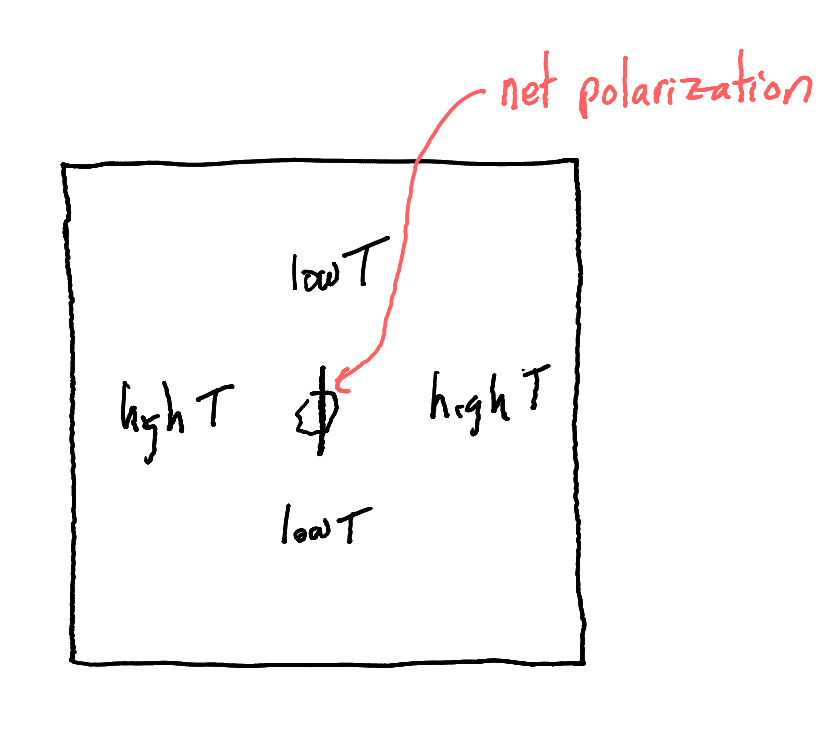 net polarization
low T
high T
high T
low T